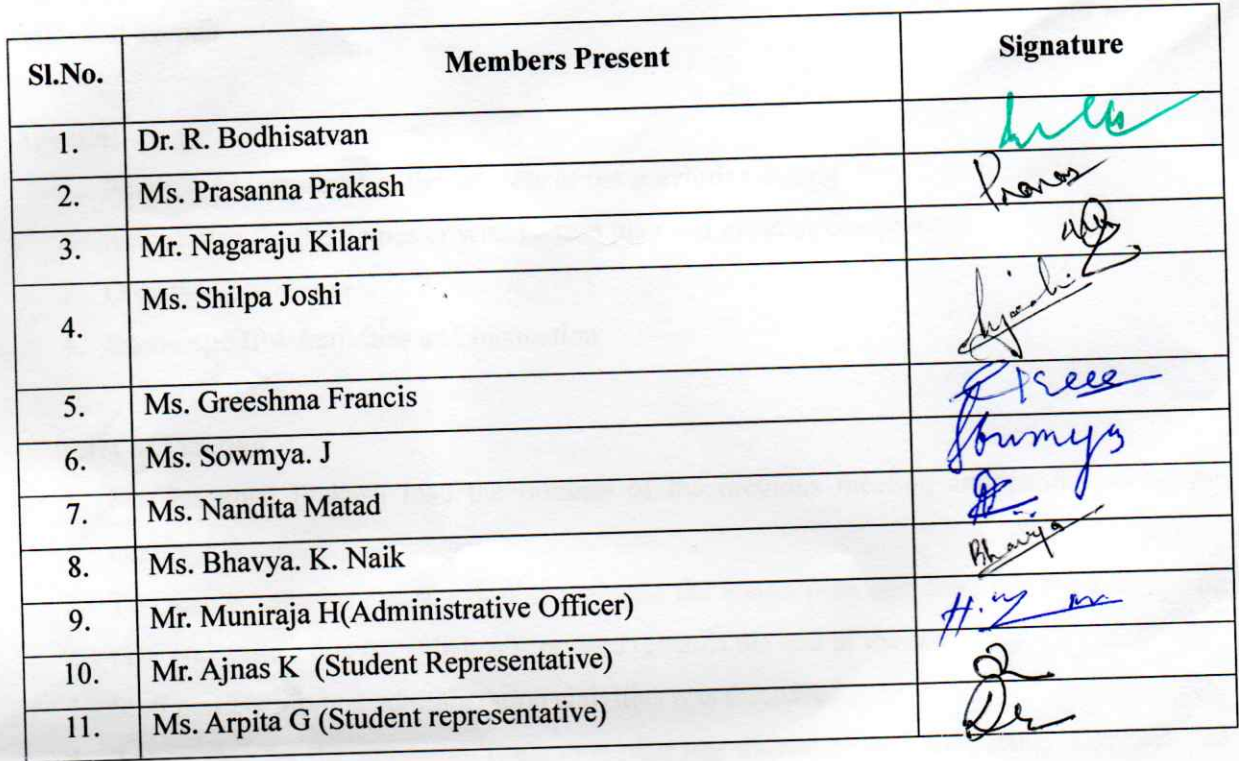 Sl.No. Members Present Signature
1. Dr. R. Bodhisatvan
2. Ms. Prasanna Prakash
3. Mr. Nagaraju Kilari
4. Ms. Shilpa Joshi
5. Ms. Greeshma Francis
6. Ms. Sowmya. J Sowmya
7. Ms. Nandita Matad
8. Ms. Bhavya. K. Naik Bhavya
9. Mr. Muniraja H(Administrative Officer)
10. Mr. Ajnas K (Student Representative)
11. Ms. Arpita G (Student representative)